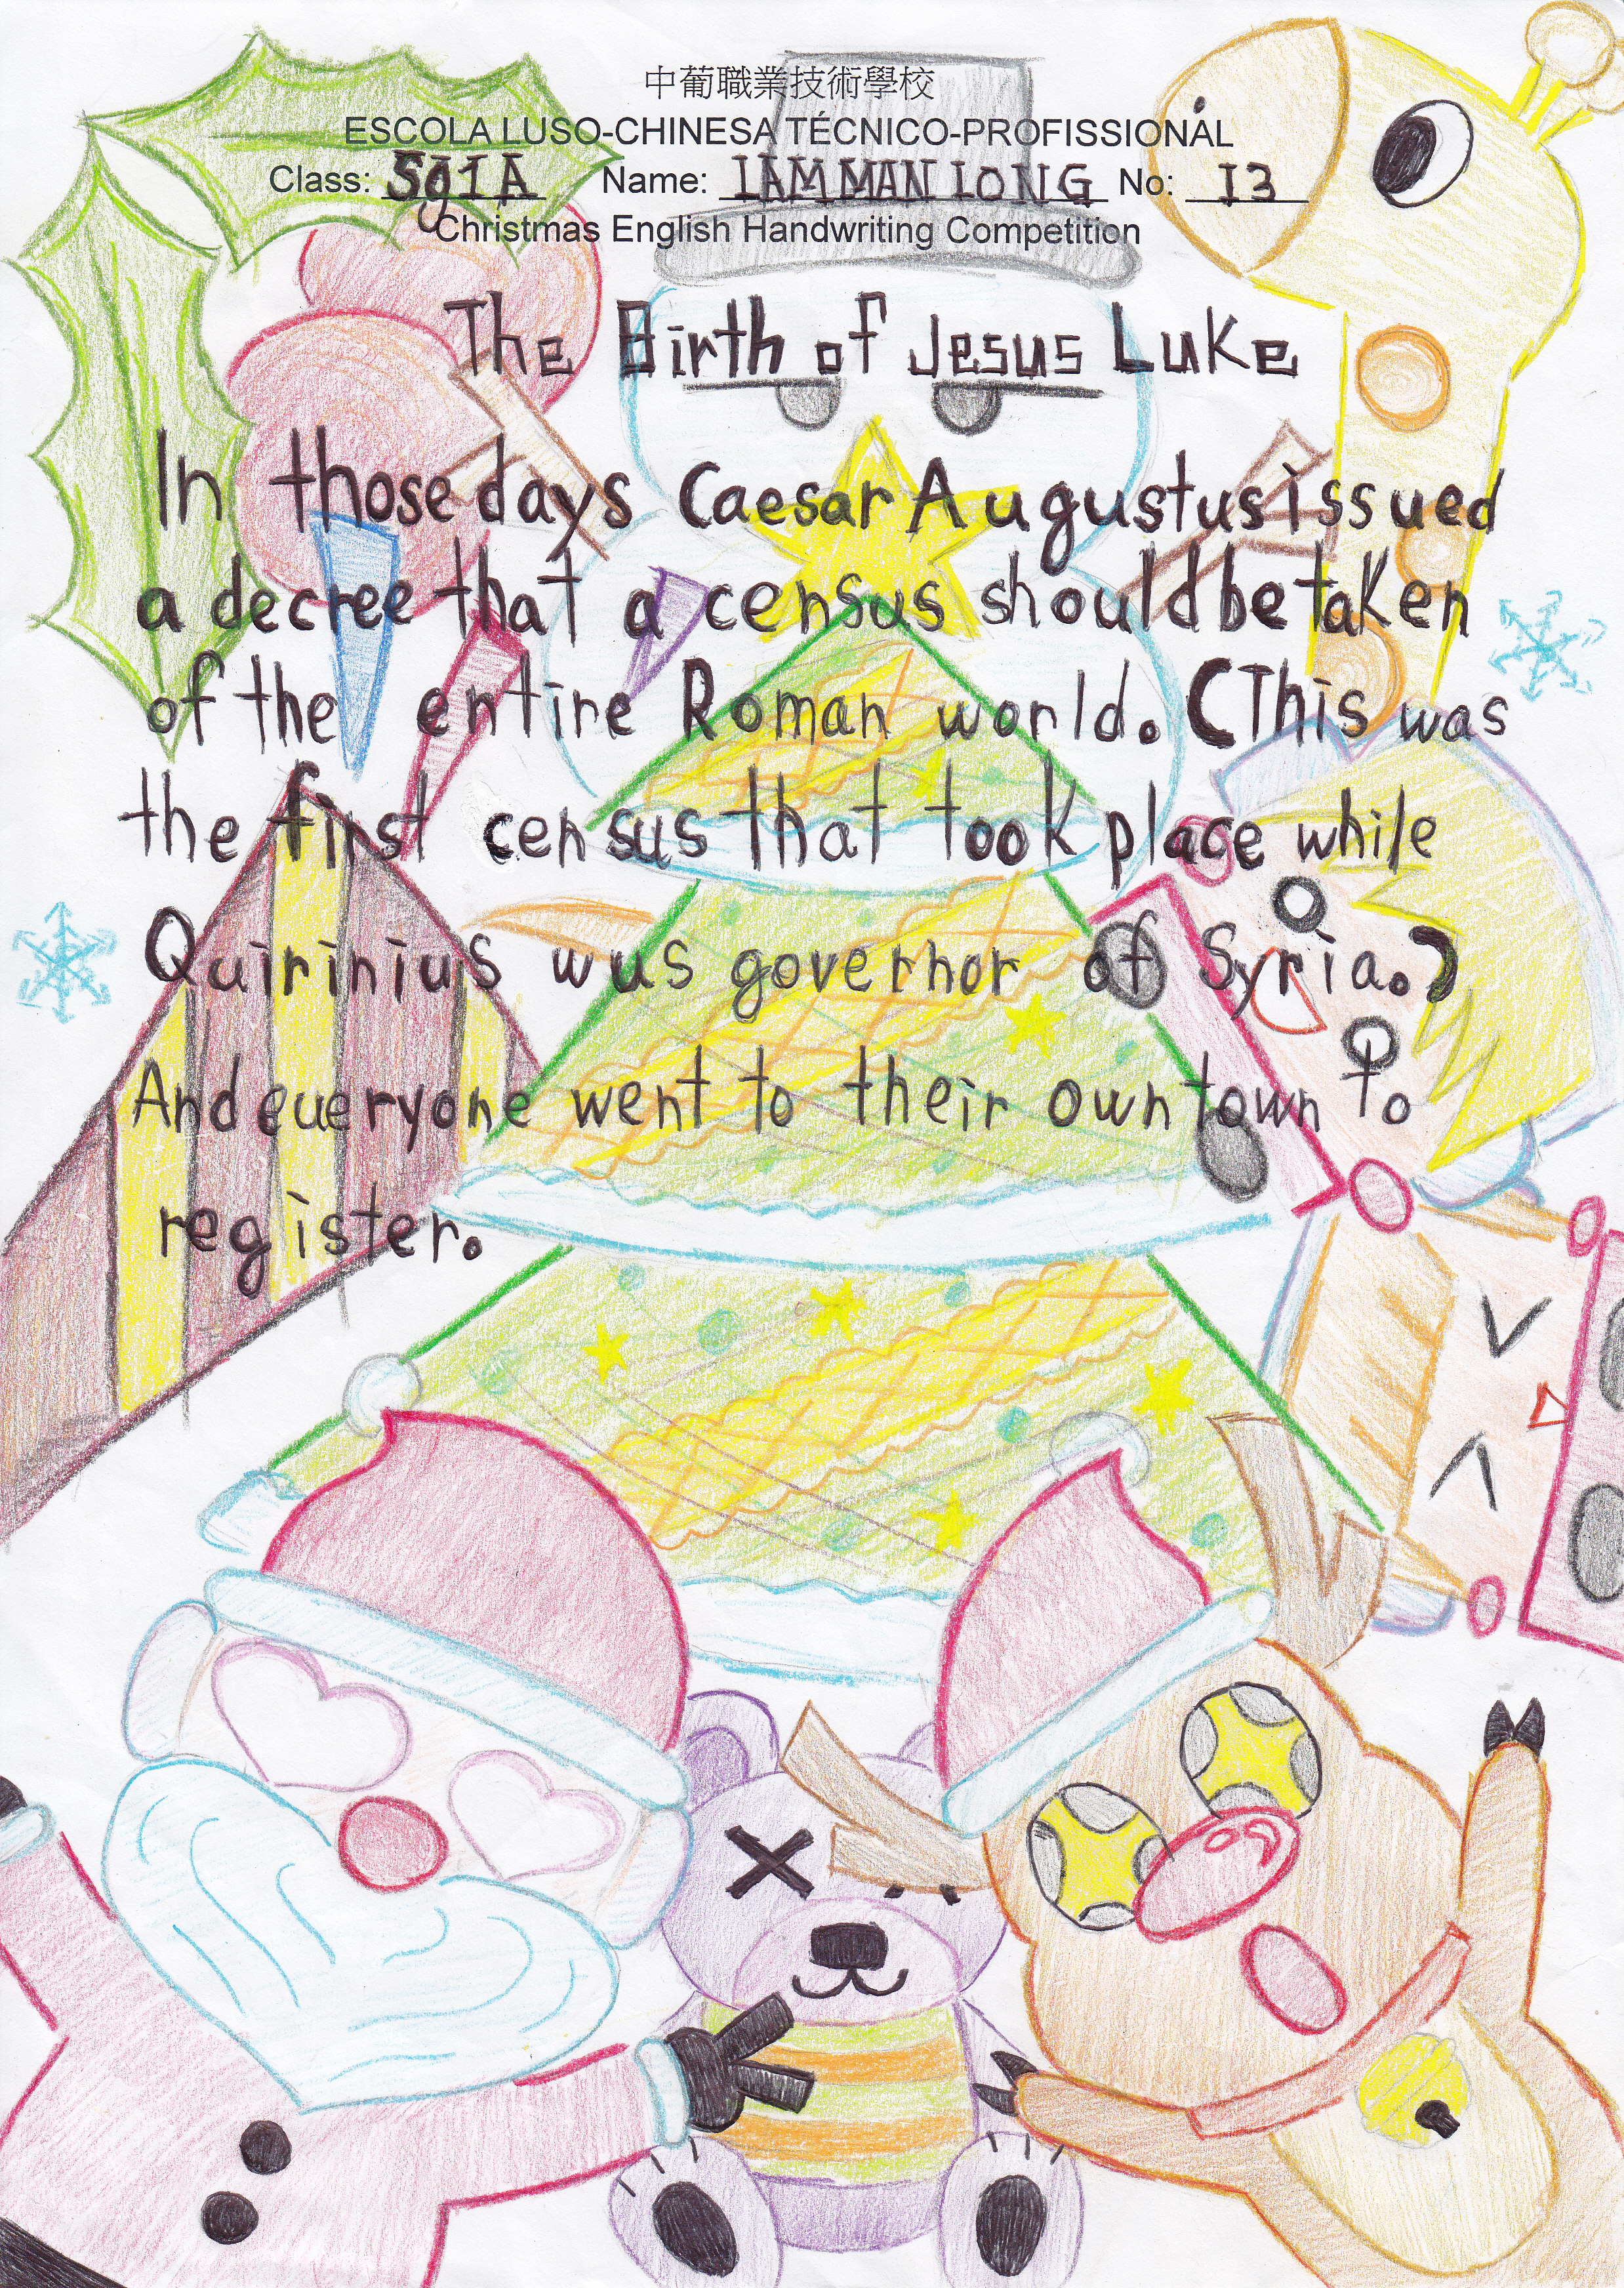 中葡職業技術學校
ESCOLA LUSO-CHINESA TÉCNICO-PROFISSIONAL
Class: Sg1A Name: IAM MAN IONG No: 13
Christmas English Handwriting Competition
The Birth of Jesus Luke
In those days Caesar Augustus issued
a decree that a census should be taken
of the entire Roman world. (This was
the first census that took place while
Quirinius wus governor of Syria.)
And eueryone went to their own town to
register.